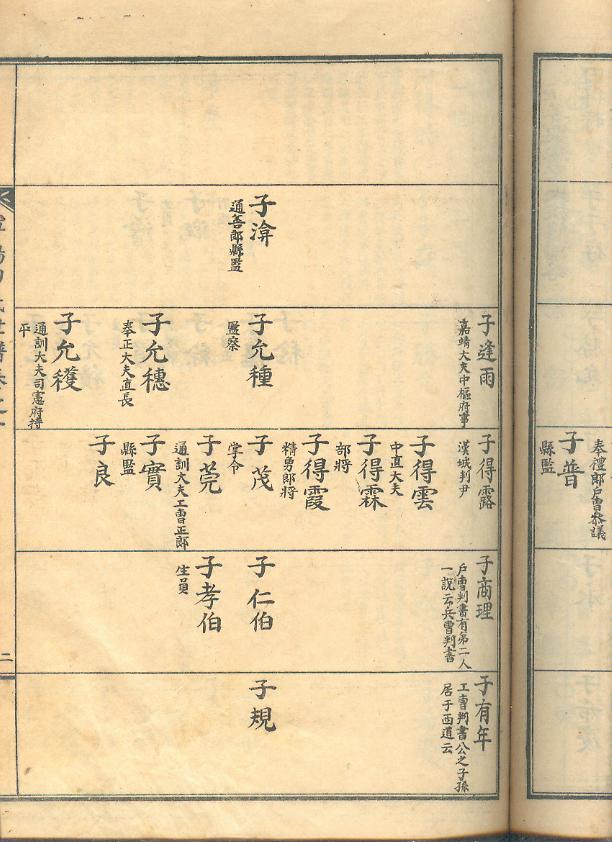 奉禮郎戶曹參議
子普
縣監
子逢雨
嘉靖大夫中樞府事
子得露
漢城判尹
子商理
戶曹判書有弟二人
一說云兵曹判書
子有年
工曹判書公之子孫
居于西道云
子得雲
中直大夫
子得霖
部將
子得霞
精勇郎將
子渰
通善郎縣監
子允種
監察
子茂
掌令
子仁伯
子規
子莞
通訓大夫工曹正郎
子孝伯
生員
子允穗
奉正大夫直長
子實
縣監
子良
子允穫
通訓大夫司憲府持
平
氏世譜卷之
二